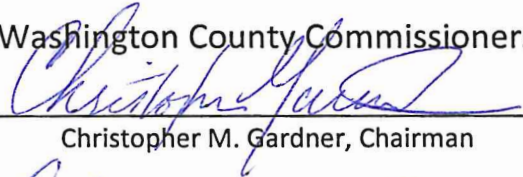 Washington County Commissioner
Christopher Gardner
Christopher M. Gardner, Chairman